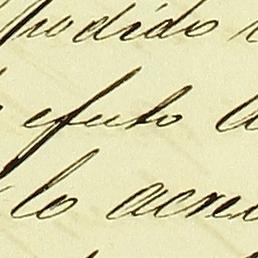 podido
efecto
lo acre